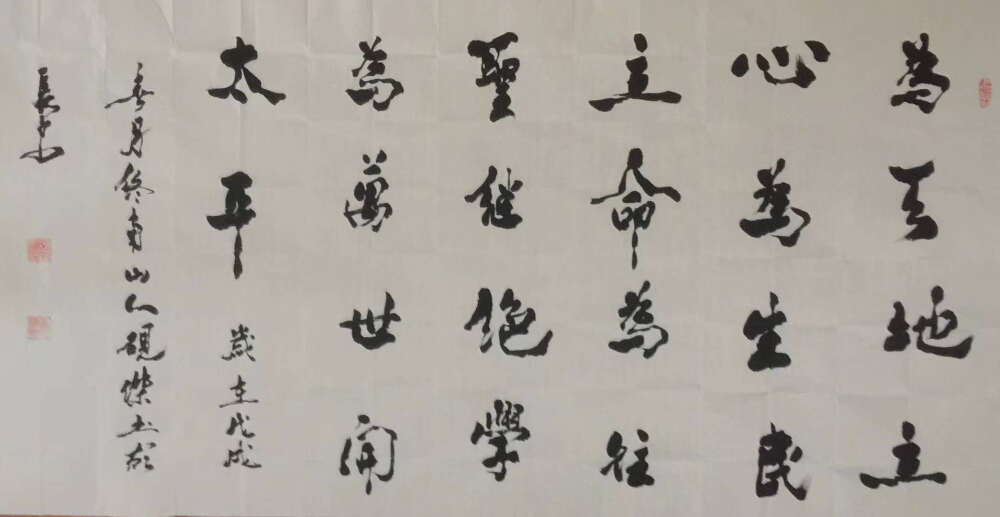 為天地立
心為生民
立命為往
聖継絶學
為萬世開
太平 歲在戊戌
春月終南山人硯傑土書於
長安